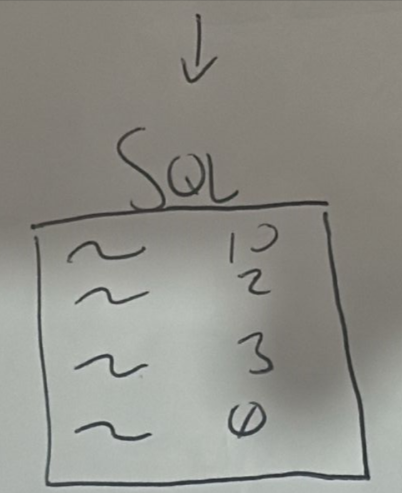 SQL
~ 10
~ 2
~ 3
~ 0